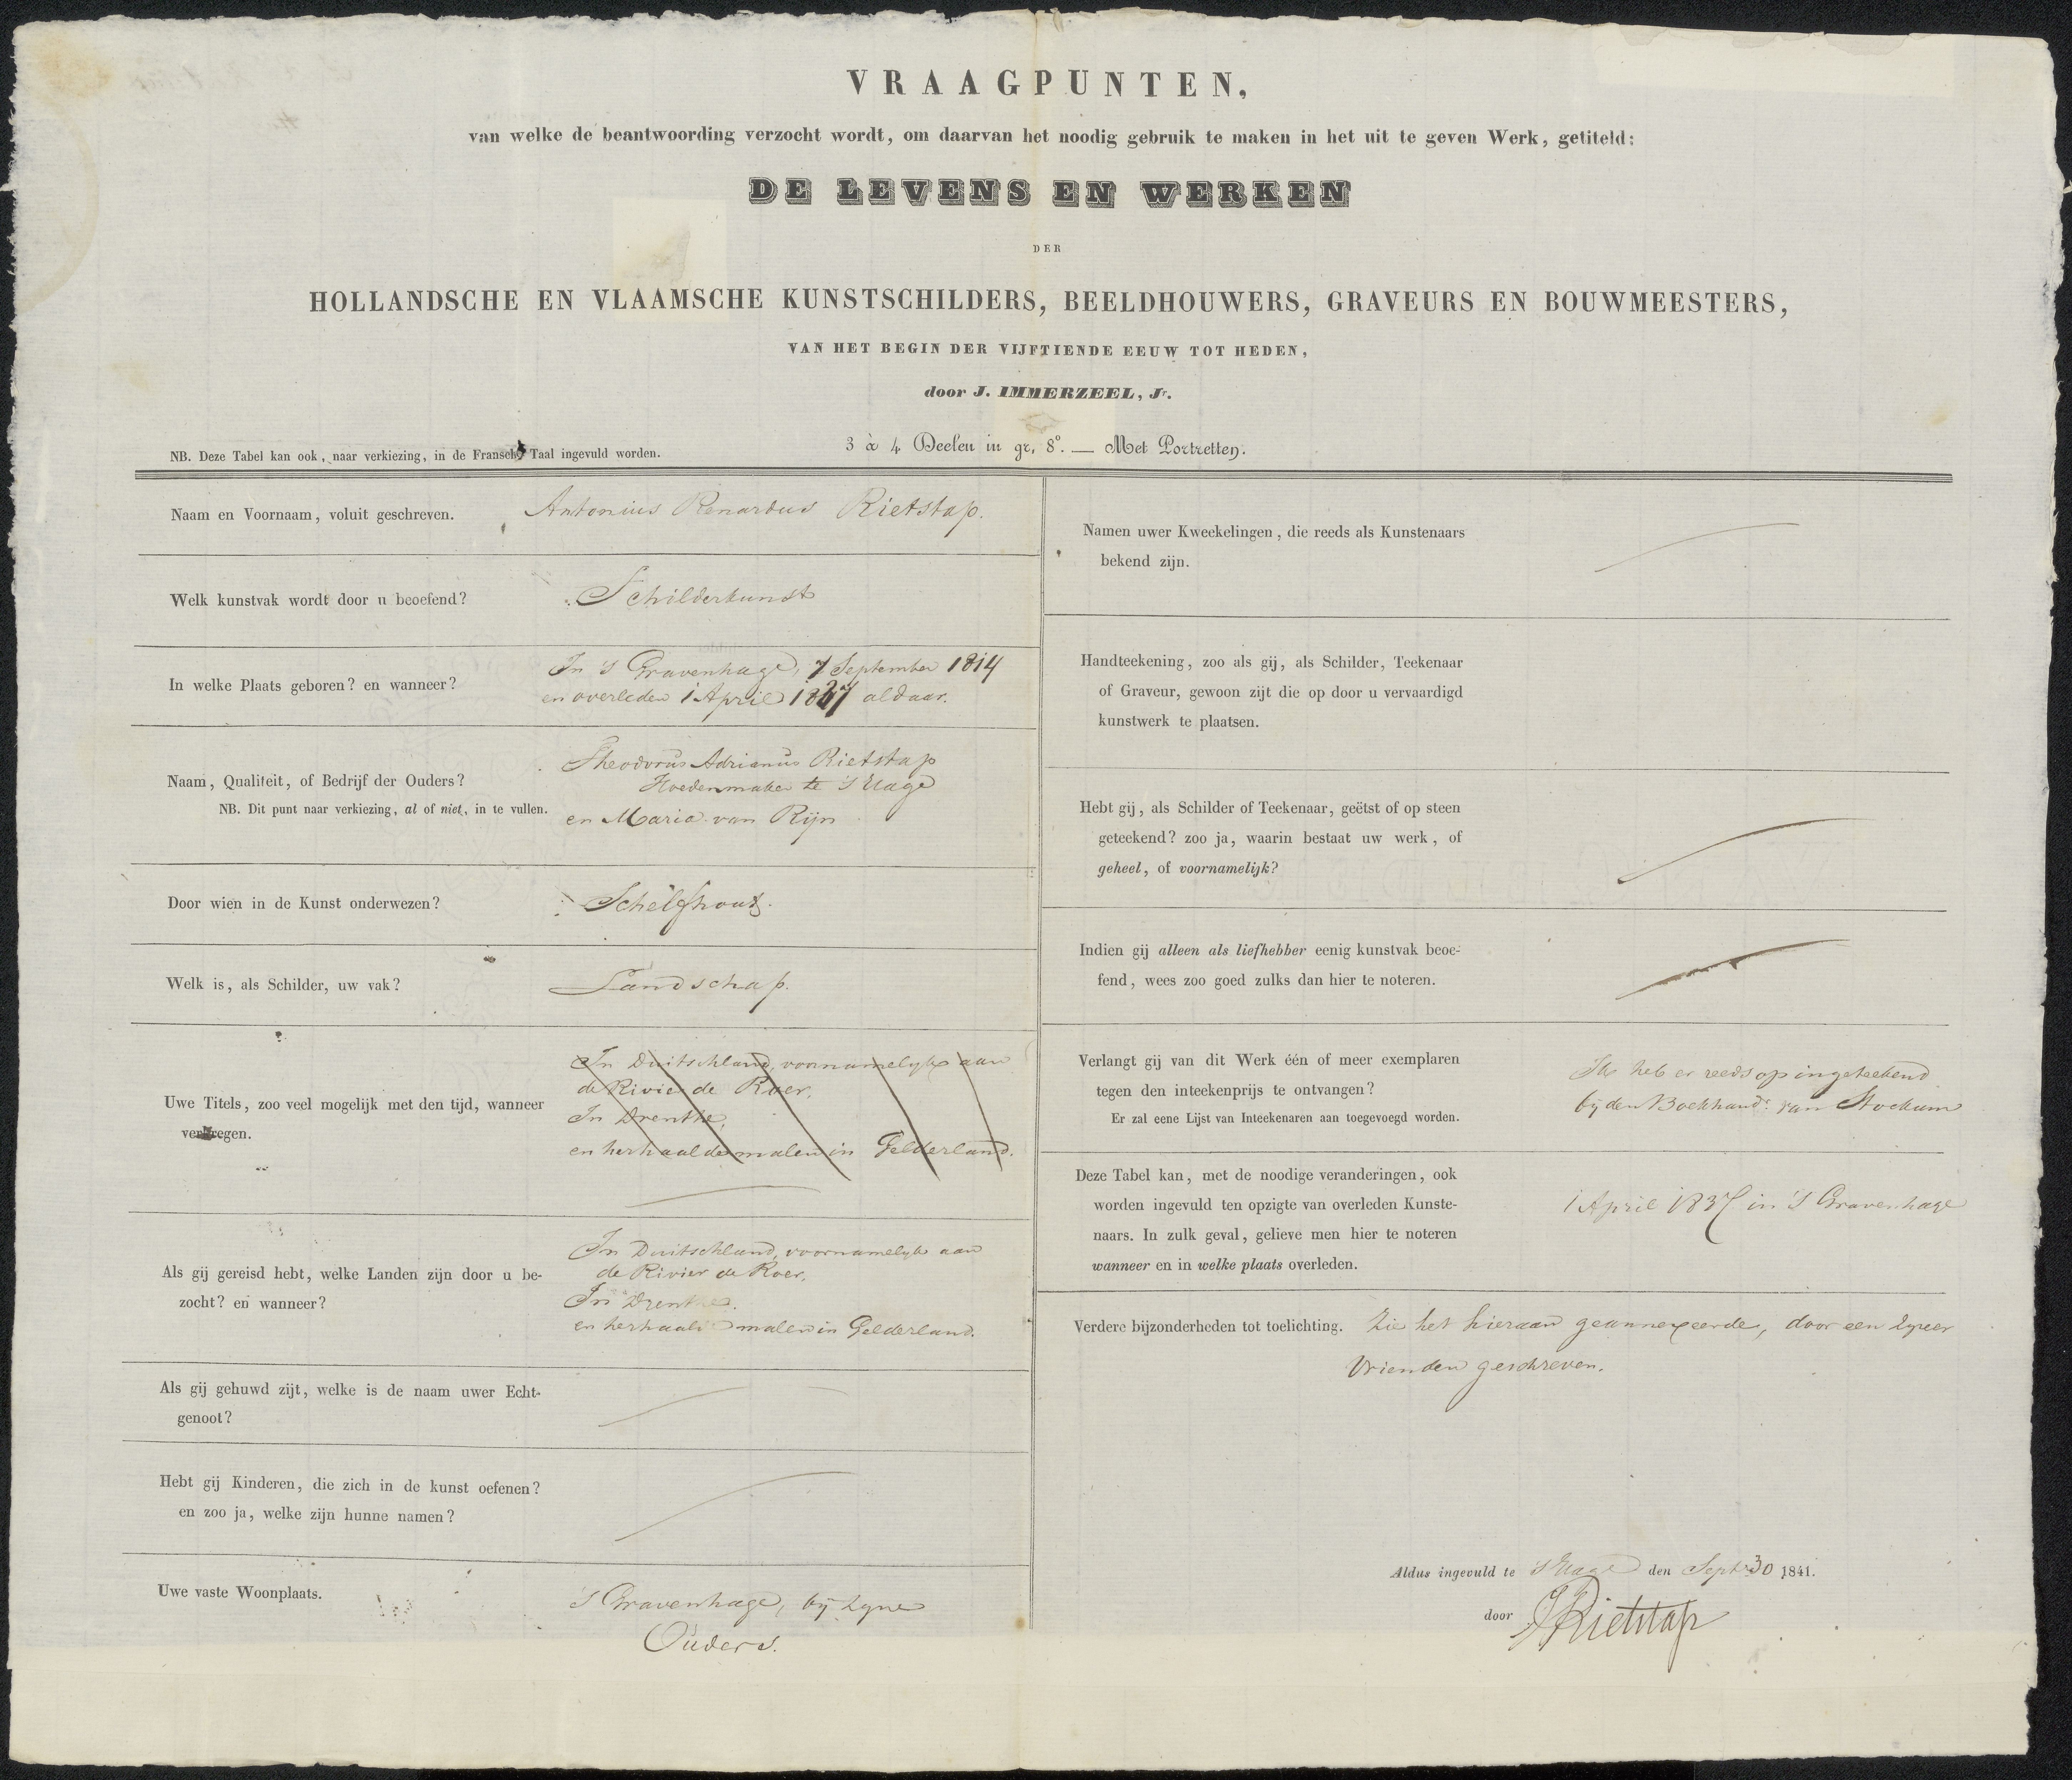 VRAAGPUNTEN,
van welke de beantwoording verzocht wordt, om daarvan het noodig gebruik te maken in het uit te geven Werk, getiteld:
DE LEVENS EN WERKEN
DER
HOLLANDSCHE EN VLAAMSCHE KUNSTSCHILDERS, BEELDHOUWERS, GRAVEURS EN BOUWMEESTERS,
VAN HET BEGIN DER VIJFTIENDE EEUW TOT HEDEN,
door J. IMMERZEEL, Jr.
3 à 4 Deelen in gr. 8o. — Met Portretten.
NB. Deze Tabel kan ook, naar verkiezing, in de Fransche Taal ingevuld worden.
Naam en Voornaam, voluit geschreven.
Antonius Renardus Rietstap.
Welk kunstvak wordt door u beoefend?
Schilderkunst
In welke Plaats geboren? en wanneer?
In 's Gravenhage, 7 September 1814
en overleden 1 April 1837 aldaar.
Naam, Qualiteit, of Bedrijf der Ouders?
NB. Dit punt naar verkiezing, al of niet, in te vullen.
Theodorus Adrianus Rietstap
Hoedenmaker te 's Hage
en Maria van Rijn
Door wien in de Kunst onderwezen?
Schelfhout.
Welk is, als Schilder, uw vak?
Landschap.
Uwe Titels, zoo veel mogelijk met den tijd, wanneer
verkregen.
In Duitschland, voornamelyk aan
de Rivier de Roer.
In Drenthe,
en herhaaldemalen in Gelderland.
Als gij gereisd hebt, welke Landen zijn door u be-
zocht? en wanneer?
In Duitschland, voornamelyk aan
de Rivier de Roer.
In Drenthe.
en herhaaldemalen in Gelderland.
Als gij gehuwd zijt, welke is de naam uwer Echt-
genoot?
Hebt gij Kinderen, die zich in de kunst oefenen?
en zoo ja, welke zijn hunne namen?
Uwe vaste Woonplaats.
's Gravenhage, by zyne
Ouders.
Namen uwer Kweekelingen, die reeds als Kunstenaars
bekend zijn.
Handteekening, zoo als gij, als Schilder, Teekenaar
of Graveur, gewoon zijt die op door u vervaardigd
kunstwerk te plaatsen.
Hebt gij, als Schilder of Teekenaar, geëtst of op steen
geteekend? zoo ja, waarin bestaat uw werk, of
geheel, of voornamelijk?
Indien gij alleen als liefhebber eenig kunstvak beoe-
fend, wees zoo goed zulks dan hier te noteren.
Verlangt gij van dit Werk één of meer exemplaren
tegen den inteekenprijs te ontvangen?
Er zal eene Lijst van Inteekenaren aan toegevoegd worden.
Ik heb er reeds op ingeteekend
by den Boekhandr. van Stockum
Deze Tabel kan, met de noodige veranderingen, ook
worden ingevuld ten opzigte van overleden Kunste-
naars. In zulk geval, gelieve men hier te noteren
wanneer en in welke plaats overleden.
1 April 1837 in 's Gravenhage
Verdere bijzonderheden tot toelichting.
Zie het hieraan geannexeerde, door een zyner
Vrienden geschreven.
Aldus ingevuld te 's Hage den Septr 30 1841.
door Rietstap